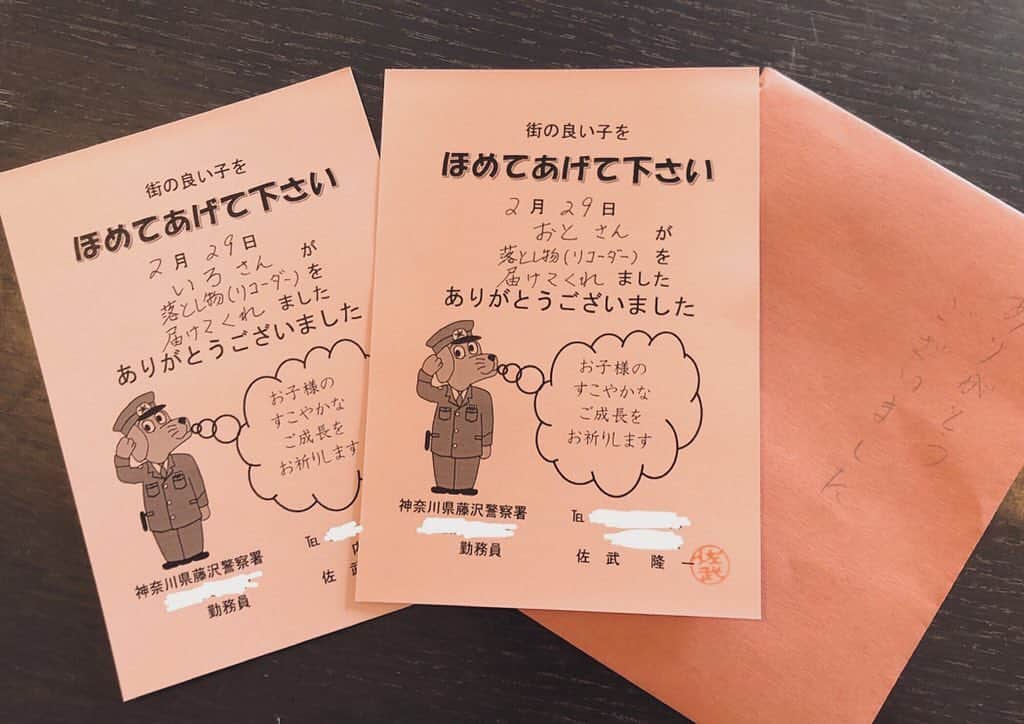 街の良い子を
ほめてあげて下さい
2月29日
いろさんが
落とし物(リコーダー)を
届けてくれました
ありがとうございました
お子様の
すこやかな
ご成長を
お祈りします
神奈川県藤沢警察署
勤務員
TEL
佐武
街の良い子を
ほめてあげて下さい
2月29日
おとさんが
落とし物(リコーダー)を
届けてくれました
ありがとうございました
お子様の
すこやかな
ご成長を
お祈りします
神奈川県藤沢警察署
TEL
勤務員 佐武 隆一
佐武
ありがとう
ございました